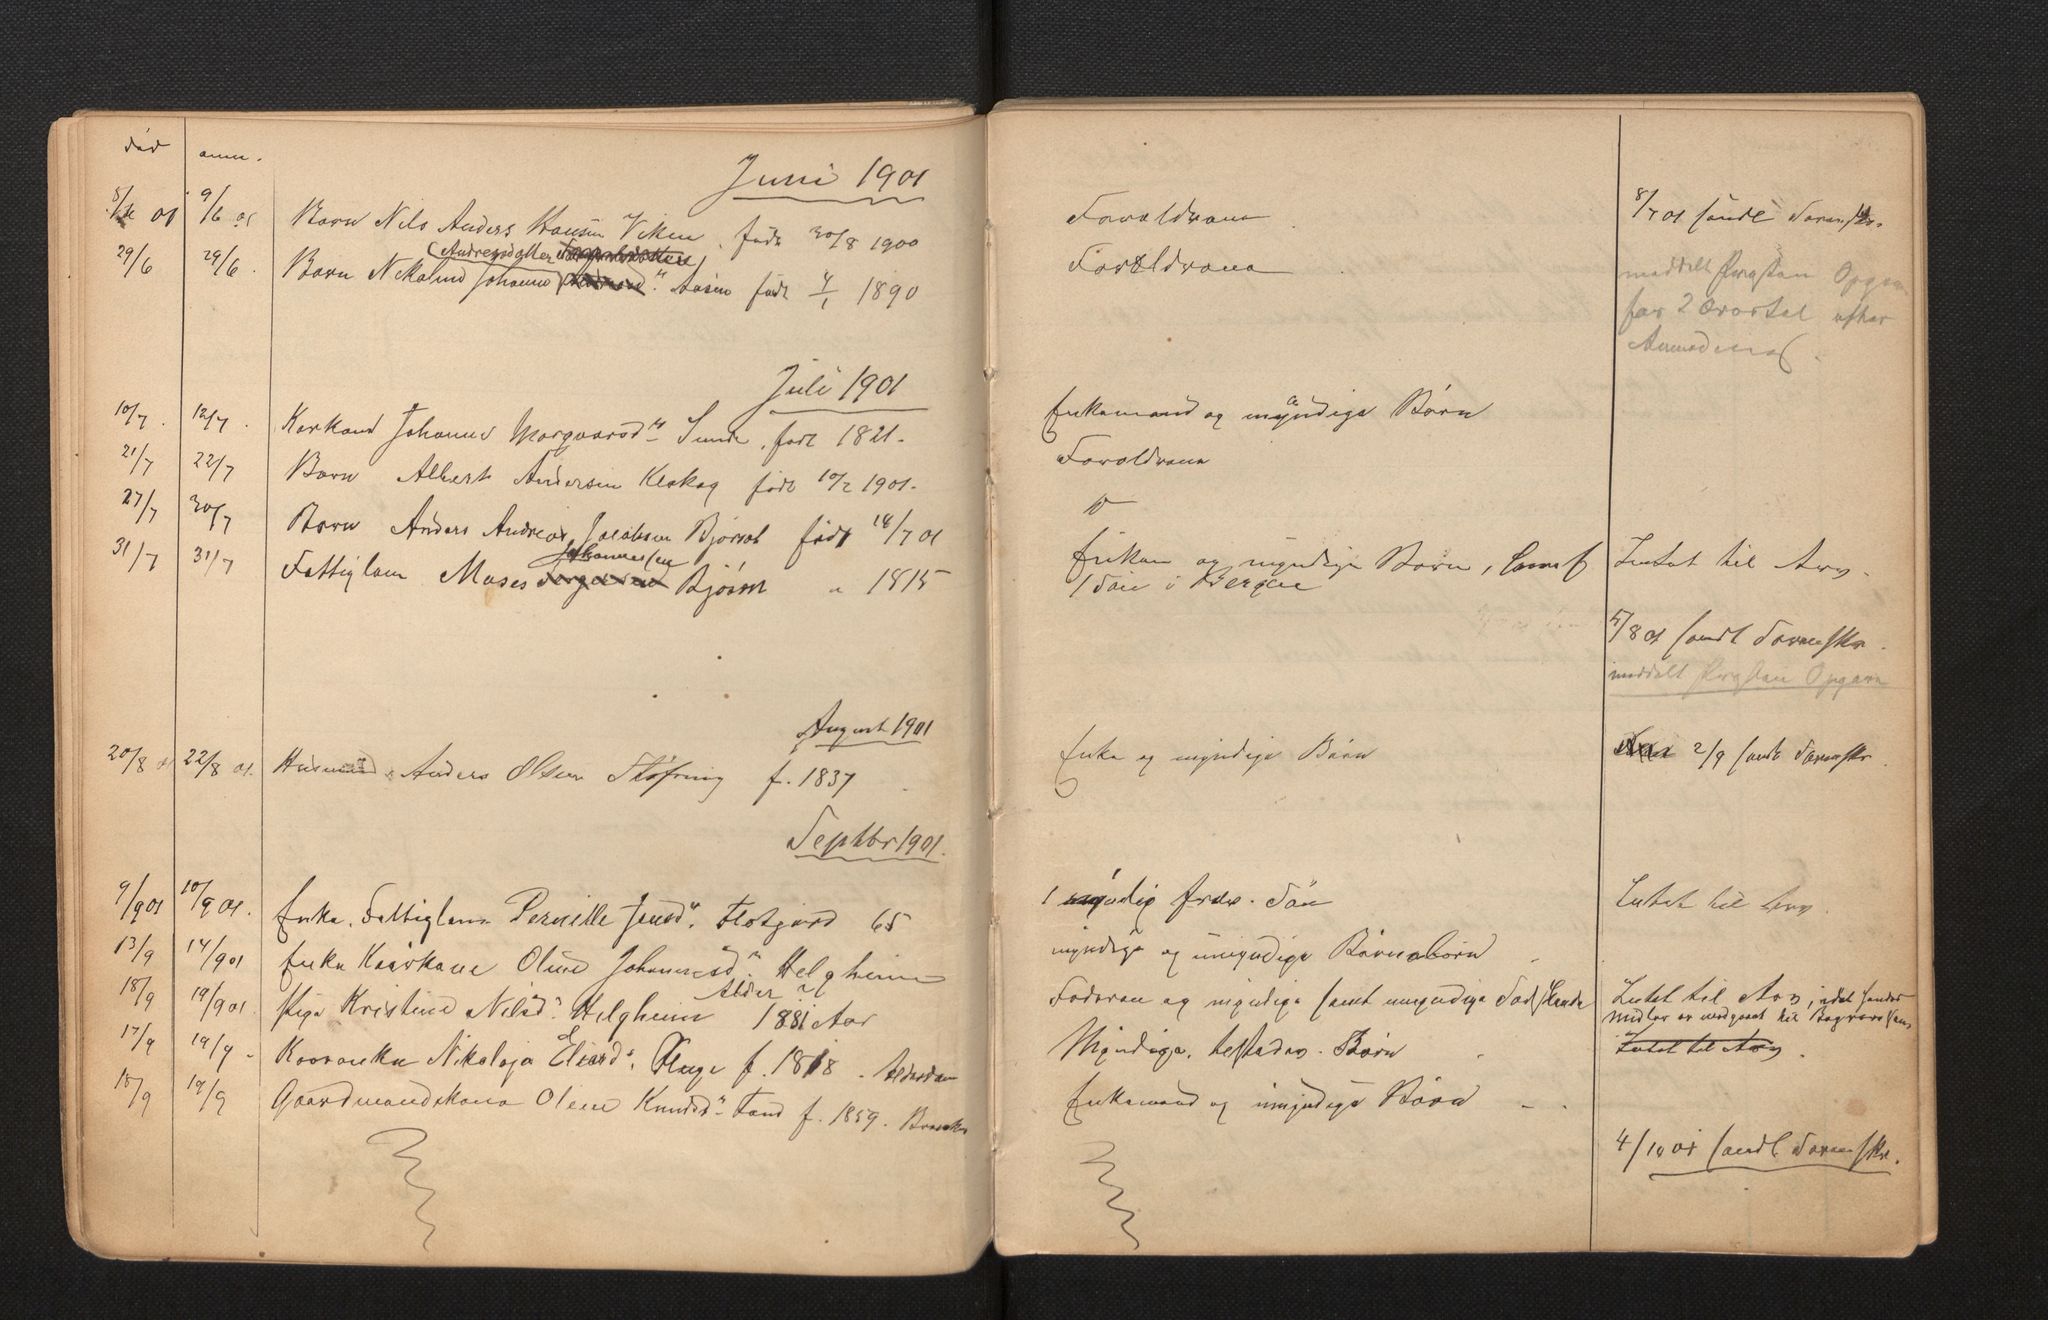 død anm.
Juni 1901
8/6 01 9/6 01 Barn Nils Anders Hansen Viken, født 30/8 1900
Andreasdatter
29/6 29/6. Barn Nikoline Johanne Aasen født 4/1 1890
Juli 1901
10/7. 12/7. Kaarkone Johanne Markvardsd. Sunde, født 1821.
21/7 22/7 Barn Albert Andersen Kleskog født 10/2 1901.
27/7 30/7 Barn Anders Andreas Jacobsen født 14/7 01
Johannessen
31/7 31/7 Fattiglem Moses Bjørset " 1815
August 1901
20/8 01 22/8 01. Husmand Anders Olsen f. 1837
Septbr 1901.
9/9 01 10/9 01. Enke. Fattiglem Pernille Jensd. Flotgjerd 65
13/9 14/9 01 Enke Kaarkone Oline Johannesd. Helgheim
Alder
18/9 19/9 01. Pige Kristine Nilsd. Helgheim 1881 Aar
17/9 19/9 - Kaarenke Nikoloja Eliasd. f. 1818 - Alderdom
18/9 19/9 Gaardmandskone Oline Knudsd. Sand f. 1859.
Forældrene 8/7 01 sendt Sorenskr.
Forældrene meddelt Opgave
for 2 Kvartal efter
Enkemand og myndige Børn
Forældrene
"
Enken og myndige Børn, Intet til Arv.
1 Søn i Bergen
5/8 01 sendt Sorenskr.
meddelt Opgave
Enke og myndige Børn 2/9 sendt Sorenskr.
1 myndig Søn Intet til Arv.
myndige og umyndige Børnebørn
Faderen og myndige samt umyndige Sødskende Intet til Arv,
midler er medgaaet til Begravelsen
Myndige, Børn. Intet til Arv.
Enkemand og umyndige Børn - .
4/10 01 sendt Sorenskr.